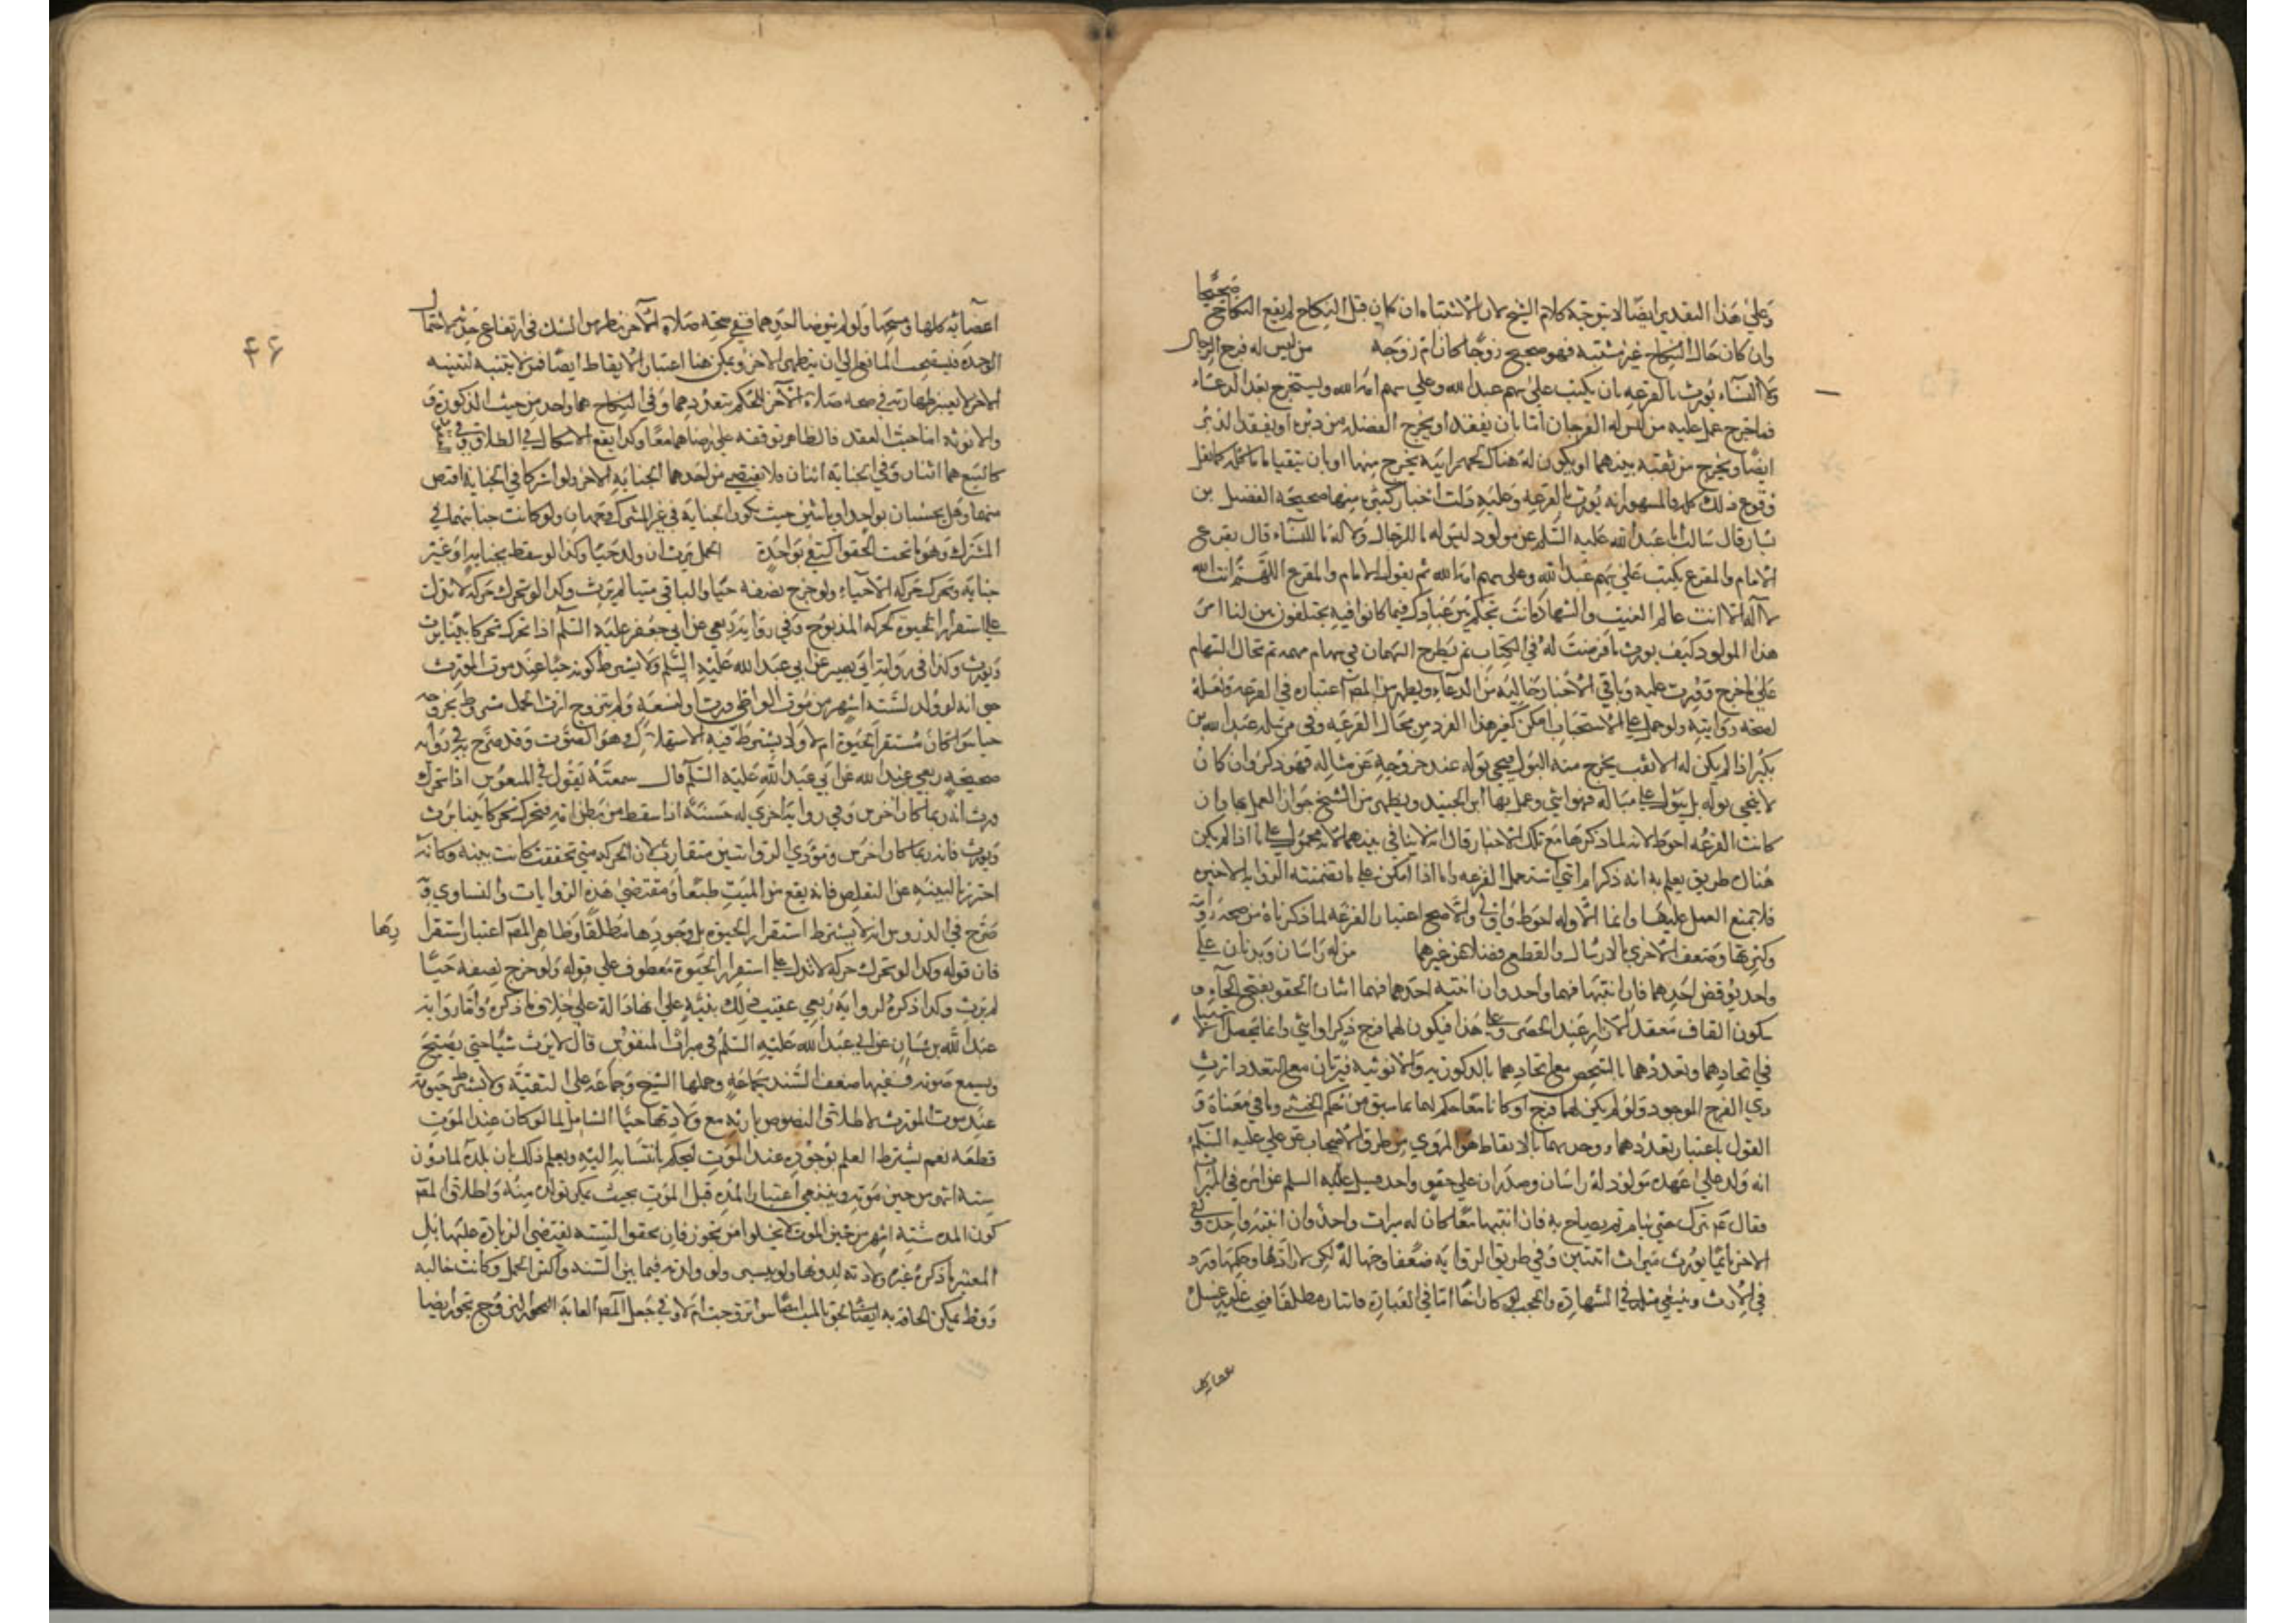 صحيحا
وعلى هذا التقدير ايضا لا يتوجه كلام الشيخ لان الاشتباه ان كان قبل النكاح لم يقع النكاح
وان كان حال النكاح غير مشتبه فهو صحيح زوجا كان ام زوجة من ليس له فرج الرجال
ولا النساء يورث بالقرعه بان يكتب على سهم عبد الله وعلى سهم امة الله ويستخرج بعد الدعاء
فما خرج عمل عليه من ليس له الفرجان اما بان يفقدا ويخرج الفضلة من دبره او يفقد الدبر
ايضا ويخرج من ثقبه بينهما او يكون له هناك لحمه رابيه يخرج منها او بان يتقيا ما ياكله كما نقل
وقوع ذلك كله والمشهور انه يورث بالقرعه وعليه دلت اخبار كثيره منها صحيحة الفضيل بن
يسار قال سالت ابا عبد الله عليه السلم عن مولود ليس له ما للرجال ولا له ما للنساء قال يقرع عـ
الامام والمقرع يكتب على سهم عبد الله وعلى سهم امة الله ثم يقول الامام والمقرع اللهم انت الله
لا اله الا انت عالم الغيب والشهادة انت تحكم بين عبادك فيما كانوا فيه يختلفون بين لنا امر
هذا المولود كيف يورث ما فرضت له في الكتاب ثم يطرح السهمان في سهام مبهمه ثم تجال السهام
على ما خرج ورث عليه وباقي الاخبار خاليه من الدعاء ويظهر من المص اعتباره في القرعه ولعله
لصحه روايته ولو حمل على الاستحباب امكن كغير هذا الفرد من محال القرعه وفي مرسله عبد الله بن
بكير اذا لم يكن له الا ثقب يخرج منه البول فنحى بوله عند خروجه عن مباله فهو ذكر وان كان
لا ينحى بوله بل يبول على مباله فهو انثى وعمل بها ابن الجنيد ويظهر من الشيخ جواز العمل بها وان
كانت القرعه احوط لانه لما ذكرها مع تلك الاخبار قال انه لا ينافي بينهما لانه محمول على ما اذا لم يكن
هناك طريق يعلم به انه ذكر ام انثى استعمل القرعه واما اذا امكن على ما تضمنته الروايه الاخيره
فلا يمتنع العمل عليها وانما الاوله احوط واولى والاصح اعتبار القرعه لما ذكرناه من صحه رواته
وكثرتها وضعف الاخرى بالارسال والقطع فضلا عن غيرهما من له راسان وبدنان على
حقو
واحد يوقظ احدهما فان انتبها فهما واحد وان انتبه احدهما فهما اثنان الحقو بفتح الحاء و
سكون القاف معقد الازار عند الخصر وعلى هذا فيكون لهما فرج ذكر او انثى وانما يحصل الاشتباه
في اتحادهما وتعددهما بالشخص مع اتحادهما بالذكوريه والانوثيه فيرثان مع التعدد ارث
ذي الفرج الموجود ولو لم يكن لهما فرج او كانا معا حكم لهما بما سبق من حكم الخنثى وما في معناه و
القول باعتبار تعددهما ووحدتهما بالايقاظ هو المروي من طرق الاصحاب عن علي عليه السلم
انه ولد على عهده مولود له راسان وصدران على حقو واحد فسئل عليه السلم عن امره في الميراث
فقال عم يترك حتى ينام ثم يصاح به فان انتبها معا كان له ميراث واحد وان انتبه واحد وبقي
الاخر نائما يورث ميراث اثنين وفي طريق الروايه ضعف وجهاله لكن لا راد لها وحكمها ورد
في الارث وينبغي مثله في الشهادة والحجب لو كان اخا اما في العبادة فاثنان مطلقا فيجب عليه غسل
اعضاء كل
٤٦
اعضائه كلها ومسحها ولو لم يتوضا احدهما ففي صحة صلاة الاخر نظر من الشك في ارتفاع حدثه لاحتمال
الوحدة فيستصحب المانع الى ان يتطهر الاخر ويمكن هنا اعتبار الايقاظ ايضا فمن لا ينتبه لتنبيه
الاخر لا يعتبر طهارته في صحه صلاة الآخر للحكم بتعددهما وفي النكاح هما واحد من حيث الذكورة و
والانوثه اما حيث العقد فالظاهر توقفه على رضاهما معا وكذا يقع الاشكال في الطلاق وفي
كالبيع هما اثنان وفي الجنايه اثنان فلا يقتص من احدهما لجنايه الاخر ولو اشتركا في الجنايه اقتص
منهما وهل يحتسبان بواحد او باثنين حيث يكون الجنايه في غير المشترك وجهان ولو كانت جنايتهما في
المشترك وهو ما تحت الحقو اكتفي بواحدة الحمل يرث ان ولد حيا وكذا لو سقط بجنايه او غير
جنايه وتحرك حركه الاحياء ولو خرج نصفه حيا والباقي ميتا لم يرث وكذا لو تحرك حركه لا تدل
على استقرار الحيوة كحركه المذبوح وفي رواية ربعي عن ابي جعفر عليه السلم اذا تحرك تحركا بينا يرث
ويورث وكذا في رواية ابي بصير عن ابي عبد الله عليه السلم ولا يشترط كونه حيا عند موت المورث
حتى انه لو ولد لسته اشهر من موت الواطي ورث او لتسعة ولم يتزوج ارث الحمل مشروط بخروجه
حيا سوا كان مستقر الحيوة ام لا ولا يشترط فيه الاستهلال وهو الصوت وقد صرح به في رواية
صحيحه ربعي بن عبد الله عن ابي عبد الله عليه السلم قال سمعته يقول في المنفوس اذا تحرك
ورث انه ربما كان اخرس وفي رواية اخرى له حسنة اذا سقط من بطن امه فتحرك تحركا بينا يرث
ويورث فانه ربما كان اخرس ومؤدي الروايتين متقارب لان الحركه متى تحققت كانت بينه وكانه
احترز بالبينه عن التقلص فانه يقع من الميت طبعا ومقتضى هذه الروايات والفتاوي و
صرح في الدروس انه لا يشترط استقرار الحيوة بل وجودها مطلقا وظاهر المص اعتبار استقرارها
فان قوله وكذا لو تحرك حركه لا تدل على استقرار الحيوة معطوف على قوله ولو خرج نصفه حيا
لم يرث وكذا ذكره لرواية ربعي عقيب ذلك بنبه على انها دالة على خلاف ما ذكره واما رواية
عبد الله بن سنان عن ابي عبد الله عليه السلم في ميراث المنفوس قال لا يرث شيئا حتى يصيح
ويسمع صوته ففيها ضعف السند بجماعة وحملها الشيخ وجماعه على التقيه ولا يشترط حيوته
عند موت المورث لاطلاق النصوص بارثه مع ولادتها حيا الشامل لما لو كان عند الموت
نطفه نعم يشترط العلم بوجوده عند الموت ليحكم بانتسابه اليه ويعلم ذلك بان تلده لما دون
سته اشهر من حين موته وينبغي اعتبار المده قبل الموت بحيث يمكن تولده منه واطلاق المص
كون المده سته اشهر من حين الموت لا يخلو من تجوز فان تحقق السته يقتضي الزيادة عليها بل
المعتبر ما ذكره غيره ولادته لدونها ولو بيسير ولو ولدته فيما بين السته واكثر الحمل وكانت خاليه
ووطء يمكن الحاقه به ايضا لحق بالميت اما سوا تزوجت ام لا وفي جعل المص الغاية التزوج تجوز ايضا